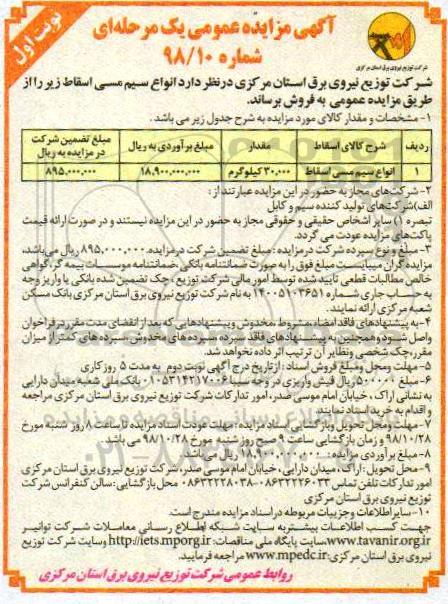 نوبت اول
شرکت توزیع نیروی برق استان مرکزی
آگهی مزایده عمومی یک مرحله‌ای
شماره ۹۸/۱۰
شرکت توزیع نیروی برق استان مرکزی درنظر دارد انواع سیم مسی اسقاط زیر را از
طریق مزایده عمومی به فروش برساند.
۱- مشخصات و مقدار کالای مورد مزایده به شرح جدول زیر می باشد.
ردیف شرح کالای اسقاط مقدار مبلغ برآوردی به ریال مبلغ تضمین شرکت در مزایده به ریال
۱ انواع سیم مسی اسقاط ۳۰,۰۰۰ کیلوگرم ۱۸,۹۰۰,۰۰۰,۰۰۰ ۸۹۵,۰۰۰,۰۰۰
۲- شرکت‌های مجاز به حضور در این مزایده عبارتند از:
الف) شرکت‌های تولید کننده سیم و کابل
تبصره ۱) سایر اشخاص حقیقی و حقوقی مجاز به حضور در این مزایده نیستند و در صورت ارائه قیمت
پاکت‌های مزایده عودت می گردد.
۳- مبلغ و نوع سپرده شرکت در مزایده: مبلغ تضمین شرکت در مزایده ۸۹۵,۰۰۰,۰۰۰ ریال می‌باشد.
مزایده گران میبایست مبلغ فوق را به صورت ضمانتنامه بانکی، ضمانتنامه موسسات بیمه گر، گواهی
خالص مطالبات قطعی تایید شده توسط امور مالی شرکت توزیع، چک تضمین شده بانکی یا واریز وجه
به حساب جاری شماره ۱۴۰۰۵۱۰۳۶۵۱ به نام شرکت توزیع نیروی برق استان مرکزی بانک مسکن
شعبه مرکزی ارائه نمایند.
۴- به پیشنهادهای فاقد امضاء، مشروط، مخدوش و پیشنهادهایی که بعد از انقضای مدت مقرر در فراخوان
واصل شود و همچنین به پیشنهادهای فاقد سپرده، سپرده های مخدوش، سپرده های کمتر از میزان
مقرر، چک شخصی و نظایر آن ترتیب اثر داده نخواهد شد.
۵- مهلت ومحل ومبلغ فروش اسناد: از تاریخ درج آگهی نوبت دوم به مدت ۵ روز کاری
۶- مبلغ ۵۰۰,۰۰۰ ریال فیش واریزی در وجه سیبا ۰۱۰۵۳۱۴۲۱۷۰۰۶ بانک ملی شعبه میدان دارایی
به نشانی اراک، خیابان امام موسی صدر، امور تدارکات شرکت توزیع نیروی برق استان مرکزی مراجعه
و اقدام به خرید اسناد نمایند.
۷- مهلت ومحل تحویل وبازگشایی اسناد مزایده: مهلت عودت اسناد مزایده تا ساعت ۸ روز شنبه مورخ
۹۸/۱۰/۲۸ و زمان بازگشایی ساعت ۹ صبح روز شنبه مورخ ۹۸/۱۰/۲۸ می باشد.
۸- مبلغ برآوردی مزایده: ۱۸,۹۰۰,۰۰۰,۰۰۰ ریال می باشد.
۹- محل تحویل: اراک، میدان دارایی، خیابان امام موسی صدر، شرکت توزیع نیروی برق استان مرکزی
امور تدارکات تلفن تماس ۰۸۶۳۲۲۲۶۰۳۳-۰۸۶۳۲۲۲۸۰۳۸ محل بازگشایی: سالن کنفرانس شرکت
توزیع نیروی برق استان مرکزی
۱۰- سایر اطلاعات وجزییات مربوطه در اسناد مزایده مندرج است.
جهت کسب اطلاعات بیشتر به سایت شبکه اطلاع رسانی معاملات شرکت توانیر
www.tavanir.org.ir سایت پایگاه ملی مناقصات: http://iets.mporg.ir وسایت شرکت توزیع
نیروی برق استان مرکزی: www.mpedc.ir مراجعه فرمایید.
روابط عمومی شرکت توزیع نیروی برق استان مرکزی